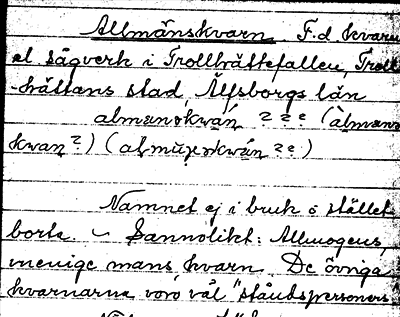 Allmänskvarn. F.d. kvarn
el sågverk i Trollhättefallen, Troll
-hättans stad, Älfsborgs län
almanskwán ? ? ? (àlmans
kwan ?) (almųgskwán ? ? )
Namnet ej i bruk o stället
borta. – Sannolikt: Allmogens,
menige mans, kvarn. De övriga
kvarnarna voro väl "ståndspersoners"